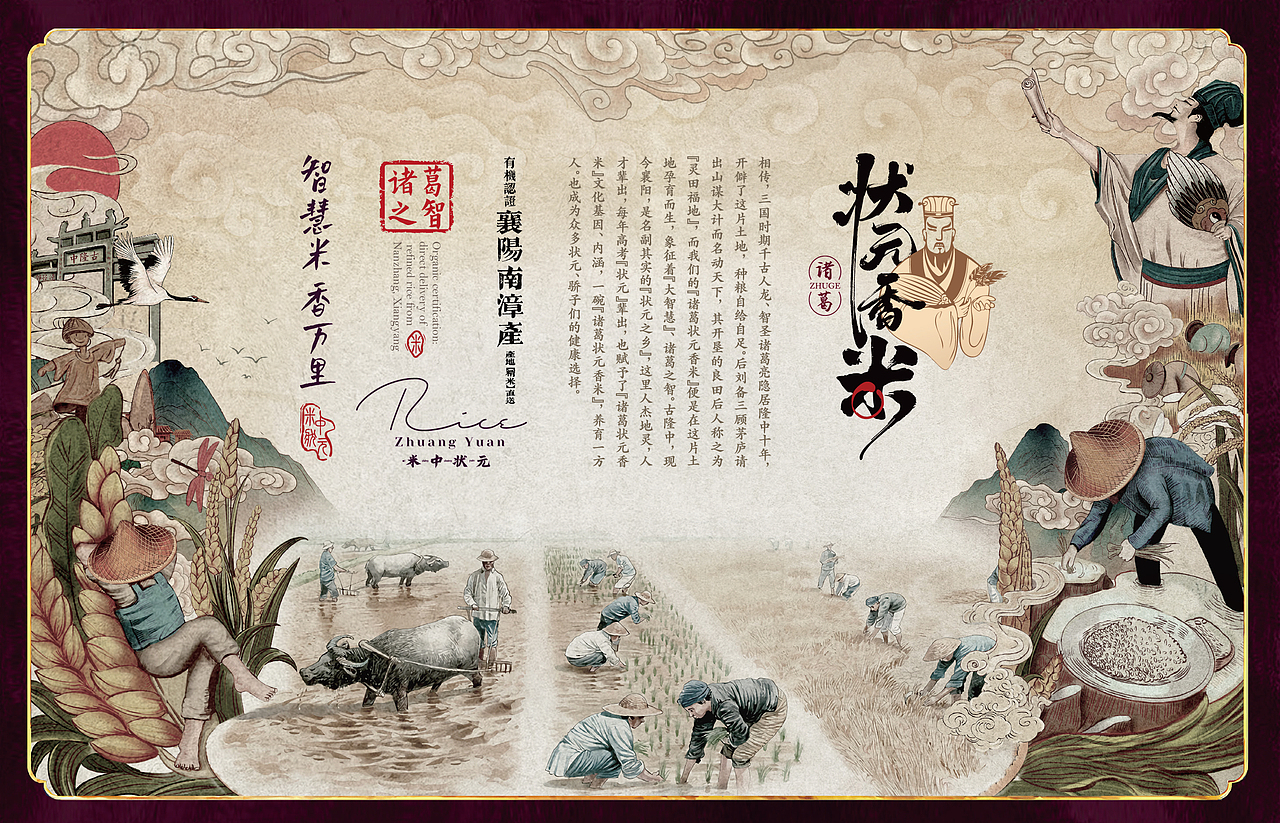 状元香米
诸
ZHUGE
葛
相传，三国时期千古人龙、智圣诸葛亮隐居隆中十年，
开僻了这片土地，种粮自给自足。后刘备三顾茅庐请
出山谋大计而名动天下，其开垦的良田后人称之为
『灵田福地』，而我们的『诸葛状元香米』便是在这片土
地孕育而生，象征着『大智慧』、诸葛之智。古隆中，现
今襄阳，是名副其实的『状元之乡』，这里人杰地灵，人
才辈出，每年高考『状元』辈出，也赋予了『诸葛状元香
米』文化基因、内涵，一碗『诸葛状元香米』，养育一方
人。也成为众多状元、骄子们的健康选择。
有機認證
襄陽南漳產
產地【精米】直送
葛智
诸之
Organic certification:
direct delivery of
refined rice from
Nanzhang, Xiangyang
米
Rice
Zhuang Yuan
·米-中-状-元
智慧米香万里
中元
米状
古隆中